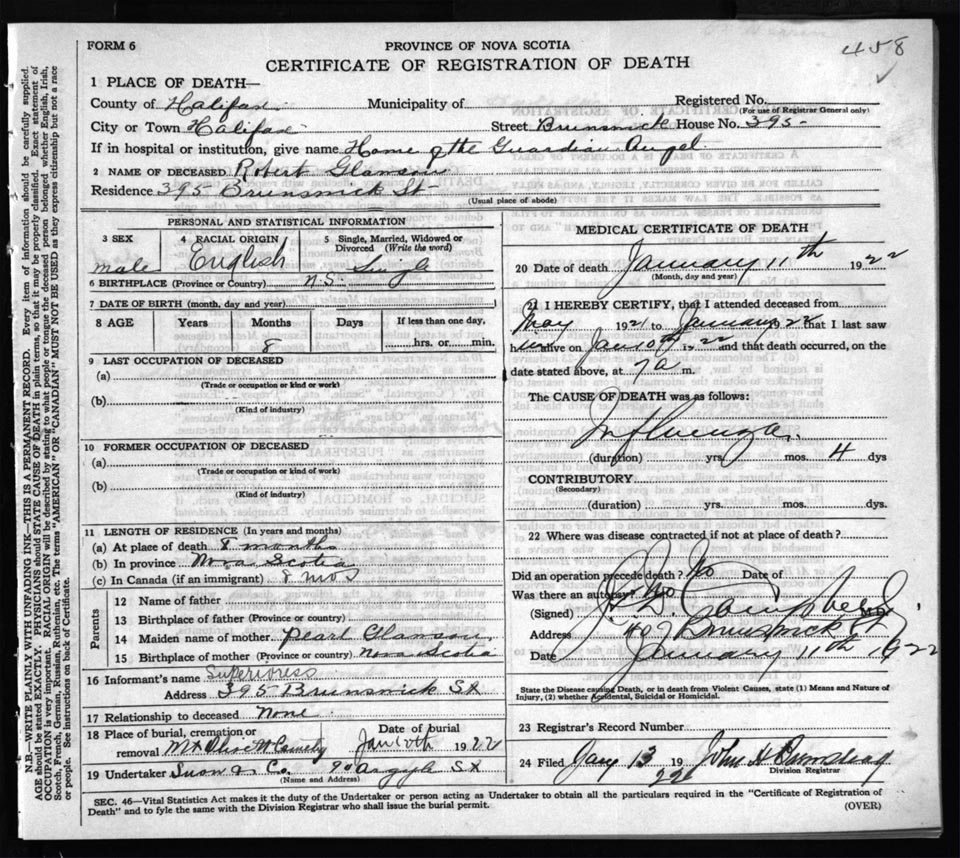 458
FORM 6
PROVINCE OF NOVA SCOTIA
CERTIFICATE OF REGISTRATION OF DEATH
1 PLACE OF DEATH—
County of Halifax Municipality of Registered No.
(For use of Registrar General only)
City or Town Halifax Street Brunswick House No. 395-
If in hospital or institution, give name Home of the Guardian Angel
2 NAME OF DECEASED Robert Glamson
Residence 395 Brunswick St-
(Usual place of abode)
PERSONAL AND STATISTICAL INFORMATION
3 SEX
male
4 RACIAL ORIGIN
English
5 Single, Married, Widowed or Divorced (Write the word)
Single
6 BIRTHPLACE (Province or Country) N.S.
7 DATE OF BIRTH (month, day and year)
8 AGE Years Months Days If less than one day,
8 hrs. or min.
9 LAST OCCUPATION OF DECEASED
(a)
(Trade or occupation or kind of work)
(b)
(Kind of industry)
10 FORMER OCCUPATION OF DECEASED
(a)
(Trade or occupation or kind of work)
(b)
(Kind of industry)
11 LENGTH OF RESIDENCE (In years and months)
(a) At place of death 8 months
(b) In province Nova Scotia
(c) In Canada (if an immigrant) 8 mos
Parents
12 Name of father
13 Birthplace of father (Province or country)
14 Maiden name of mother Pearl Glamson
15 Birthplace of mother (Province or country) Nova Scotia
16 Informant's name Superioress
Address 395 Brunswick St
17 Relationship to deceased None
18 Place of burial, cremation or Date of burial
removal Mt Olivet Jan 1922
19 Undertaker Snow & Co. 90 Argyle St
(Name and Address)
MEDICAL CERTIFICATE OF DEATH
20 Date of death January 11th 1922
(Month, day and year)
21 I HEREBY CERTIFY, that I attended deceased from
May 1921 to January 1922 that I last saw
alive on Jan 10th 1922 and that death occurred, on the
date stated above, at 7 a m.
The CAUSE OF DEATH was as follows:
Influenza
(duration) yrs. mos. 4 dys
CONTRIBUTORY
(Secondary)
(duration) yrs. mos. dys
22 Where was disease contracted if not at place of death?
Did an operation precede death? No Date of
Was there an autopsy? No
(Signed) Campbell
Address 407 Brunswick St
Date January 11th 1922
State the Disease causing Death, or in death from Violent Causes, state (1) Means and Nature of
Injury, (2) whether Accidental, Suicidal or Homicidal.
23 Registrar's Record Number
24 Filed Jany 13 19 22 John H
Division Registrar
SEC. 46—Vital Statistics Act makes it the duty of the Undertaker or person acting as Undertaker to obtain all the particulars required in the "Certificate of Registration of
Death" and to fyle the same with the Division Registrar who shall issue the burial permit.
(OVER)
N.B.—WRITE PLAINLY WITH UNFADING INK—THIS IS A PERMANENT RECORD. Every item of information should be carefully supplied.
AGE should be stated EXACTLY. PHYSICIANS should STATE CAUSE OF DEATH in plain terms, so that it may be properly classified. Exact statement of
OCCUPATION is very important. RACIAL ORIGIN will be described by stating to what people or tongue the deceased person belonged, whether English, Irish,
Scotch, French, German, Russian, Ruthenian, etc. The terms "AMERICAN" OR "CANADIAN" MUST NOT BE USED as they express citizenship but not a race
or people. See instructions on back of Certificate.